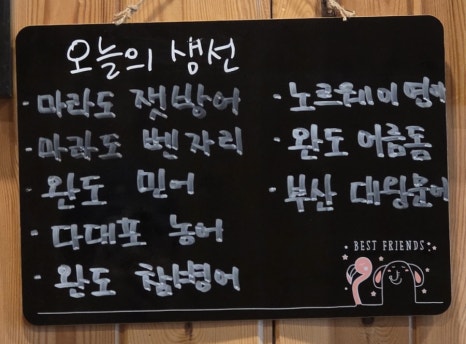 오늘의 생선
- 마라도 잿방어
- 마라도 벤자리
- 완도 민어
- 다대포 농어
- 완도 참병어
- 노르웨이 연어
- 완도 어름돔
- 부산 대왕문어
BEST FRIENDS